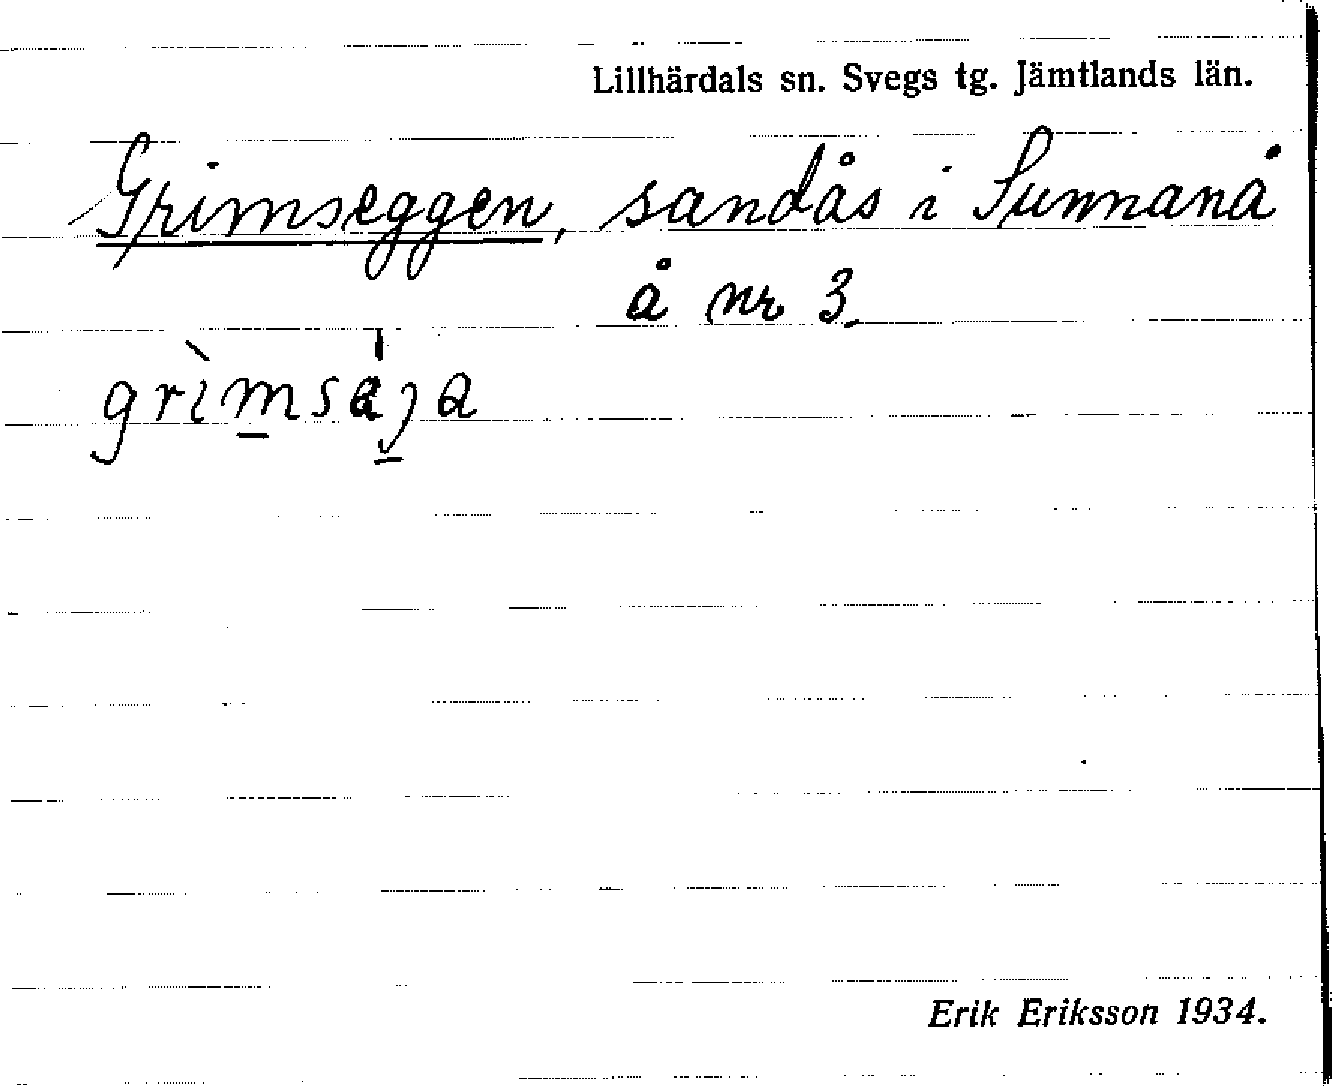 Lillhärdals sn. Svegs tg. Jämtlands län.
Grimseggen, sandås i Sunnanå
å nr 3.
Erik Eriksson 1934.